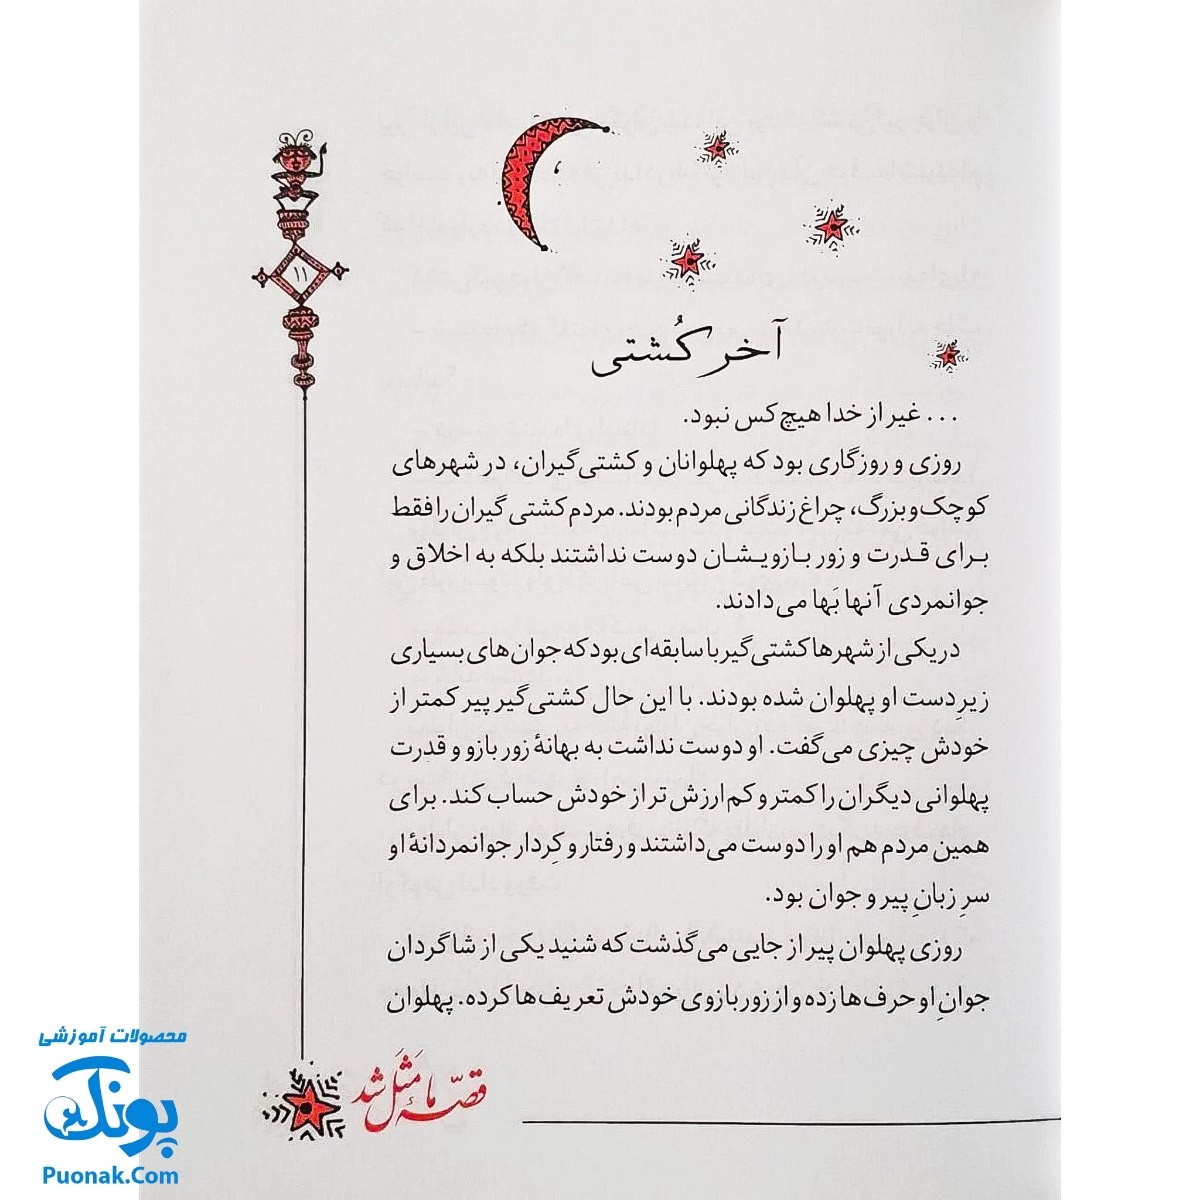 ۱۱
آخر کُشتی
... غیر از خدا هیچ کس نبود.
روزی و روزگاری بود که پهلوانان و کشتی‌گیران، در شهرهای
کوچک و بزرگ، چراغ زندگانی مردم بودند. مردم کشتی گیران را فقط
برای قدرت و زور بازویشان دوست نداشتند بلکه به اخلاق و
جوانمردی آنها بَها می‌دادند.
در یکی از شهرها کشتی‌گیر با سابقه‌ای بود که جوان‌های بسیاری
زیرِ دست او پهلوان شده بودند. با این حال کشتی‌گیر پیر کمتر از
خودش چیزی می‌گفت. او دوست نداشت به بهانهٔ زور بازو و قدرت
پهلوانی دیگران را کمتر و کم ارزش تر از خودش حساب کند. برای
همین مردم هم او را دوست می‌داشتند و رفتار و کِردار جوانمردانهٔ او
سرِ زبانِ پیر و جوان بود.
روزی پهلوان پیر از جایی می‌گذشت که شنید یکی از شاگردان
جوانِ او حرف‌ها زده و از زور بازوی خودش تعریف‌ها کرده. پهلوان
قصّهٔ ما مَثَل شد
محصولات آموزشی
پونک
Puonak.Com